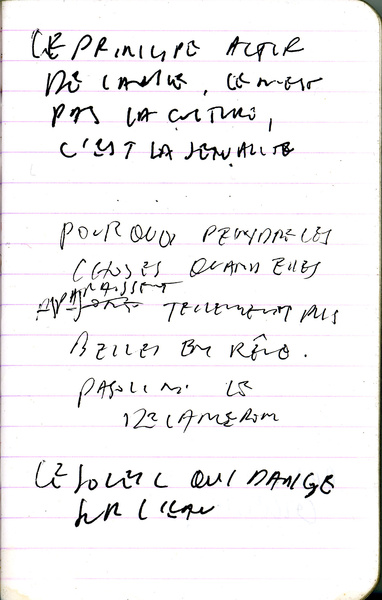 LE PRINCIPE ACTIF
DE L'ANGLE, CE N'EST
PAS LA CULTURE,
C'EST LA SEXUALITE
POURQUOI PEINDRE LES
CHOSES QUAND ELLES
APPARAISSENT
TELLEMENT PLUS
BELLES EN RÊVE.
PASOLINI LE
DECAMERON
LE SOLEIL QUI DANSE
SUR L'EAU